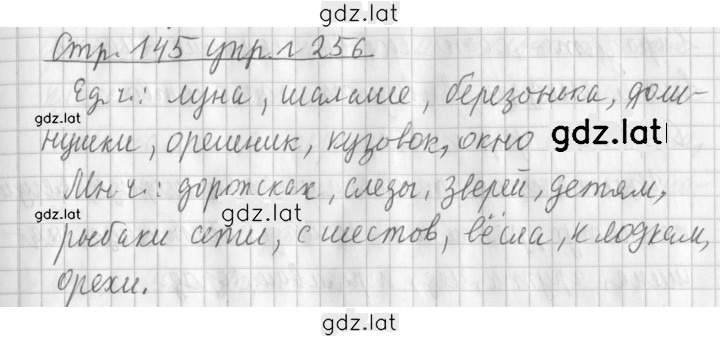 gdz.lat
Стр. 145 упр. 256
Ед.ч.: луна, шалаше, березонька, дом-
gdz.lat
нушки, орешник, кузовок, окно
gdz.lat
Мн.ч.: дорожках, следы, зверей, детям,
gdz.lat
gdz.lat
рыбаки сети, с шестов, вёсла, к лодкам,
орехи.
gdz.lat